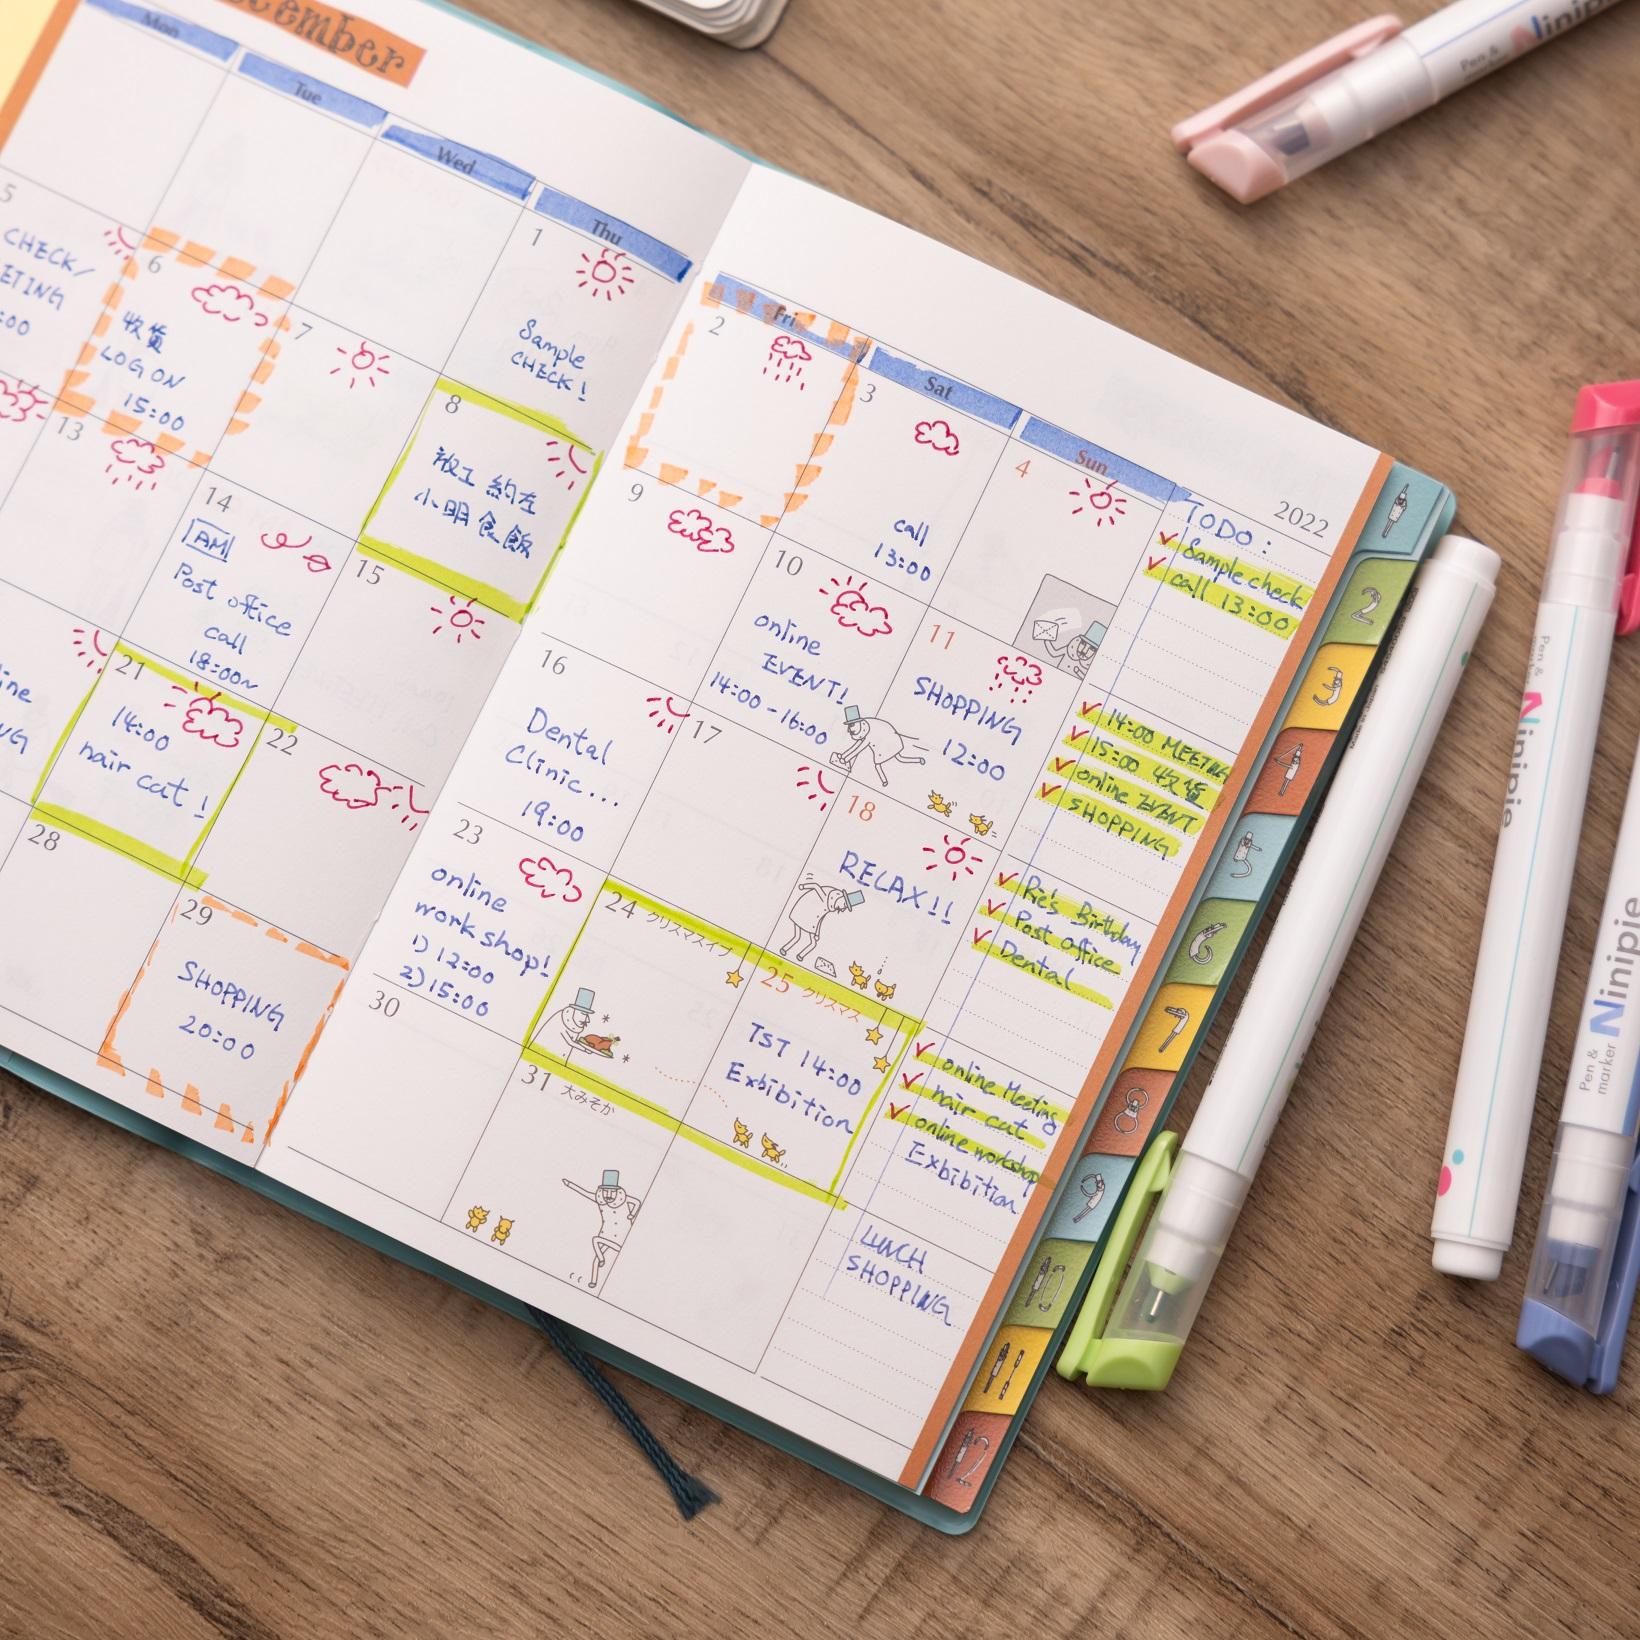 ember
Mon
Tue
Wed
Thu
Fri
Sat
Sun
2022
1
Sample
CHECK!
2
3
call
13:00
4
5
CHECK/
ETING
:00
6
收貨
LOG ON
15:00
7
8
收工 約左
小明食飯
9
10
online
EVENT!
14:00-16:00
11
SHOPPING
12:00
13
14
AM
Post office
call
18:00~
15
16
Dental
Clinic...
19:00
17
18
RELAX!!
ine
NG
21
14:00
hair cat!
22
23
online
workshop!
1) 12:00
2) 15:00
24 クリスマスイブ
25 クリスマス
TST 14:00
Exbibition
28
29
SHOPPING
20:00
30
31 大みそか
TODO:
✓ Sample check
✓ call 13:00
✓ 14:00 MEETING
✓ 15:00 收貨
✓ online EVENT
✓ SHOPPING
✓ Ric's Birthday
✓ Post office
✓ Dental
✓ online Meeting
✓ hair cut
✓ online workshop
Exbibition
LUNCH
SHOPPING
1
2
3
4
5
6
7
8
9
10
11
12
Pen &
Ninipie
Pen &
Ninipie
Pen &
marker
Ninipie